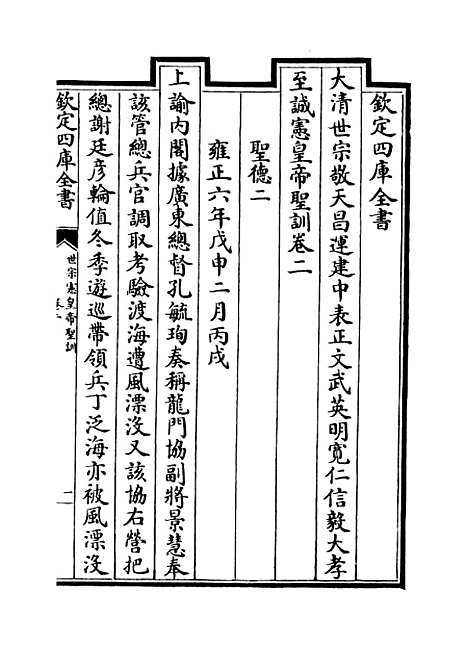 欽定四庫全書
大清世宗敬天昌運建中表正文武英明寬仁信毅大孝
至誠憲皇帝聖訓卷二
聖德二
雍正六年戊申二月丙戌
上諭内閣據廣東總督孔毓珣奏稱龍門協副將景慧奉
該管總兵官調取考驗渡海遭風漂沒又該協右營把
總謝廷彦輪值冬季遊巡帶領兵丁泛海亦被風漂沒
欽定四庫全書
世宗憲皇帝聖訓
卷二
一